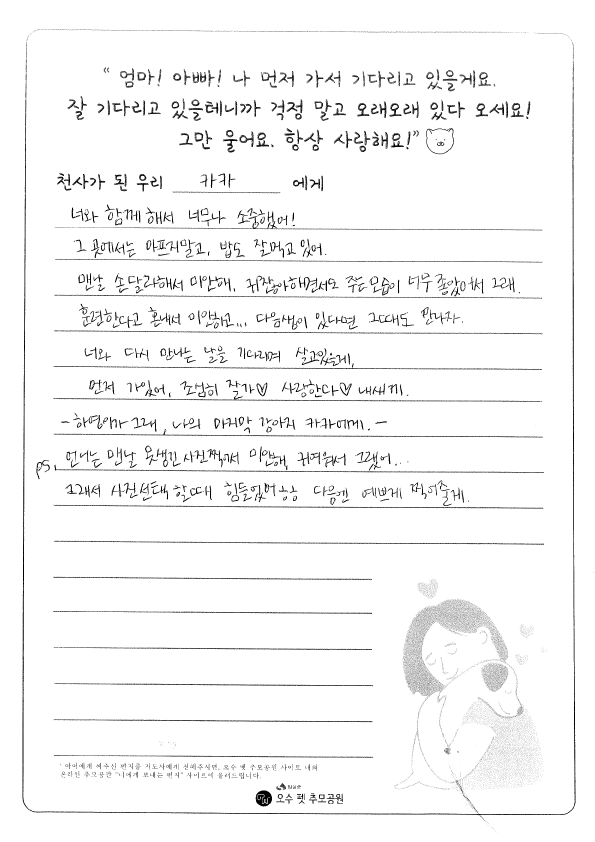 “ 엄마! 아빠! 나 먼저 가서 기다리고 있을게요.
잘 기다리고 있을테니까 걱정 말고 오래오래 있다 오세요!
그만 울어요. 항상 사랑해요!”
천사가 된 우리 카카 에게
너와 함께 해서 너무나 소중했어!
그 곳에서는 아프지말고, 밥도 잘먹고 있어.
맨날 손달라해서 미안해, 귀찮아하면서도 주는 모습이 너무 좋았어서 그래.
훈련한다고 혼내서 미안하고... 다음생이 있다면 그때도 만나자.
너와 다시 만나는 날을 기다리며 살고있을게,
먼저 가있어, 조심히 잘가♡ 사랑한다♡ 내새끼.
- 하영이가 그래, 나의 마지막 강아지 카카에게. -
ps. 언니는 맨날 못생긴 사진찍어서 미안해, 귀여워서 그랬어...
그래서 사진선택 할때 힘들었어ㅎㅎ 다음엔 예쁘게 찍어줄게.
* 아이에게 써주신 편지를 지도사에게 전해주시면, 오수 펫 추모공원 사이트 내의
온라인 추모공간 "너에게 보내는 편지" 사이트에 올려드립니다.
임실군
오수 펫 추모공원